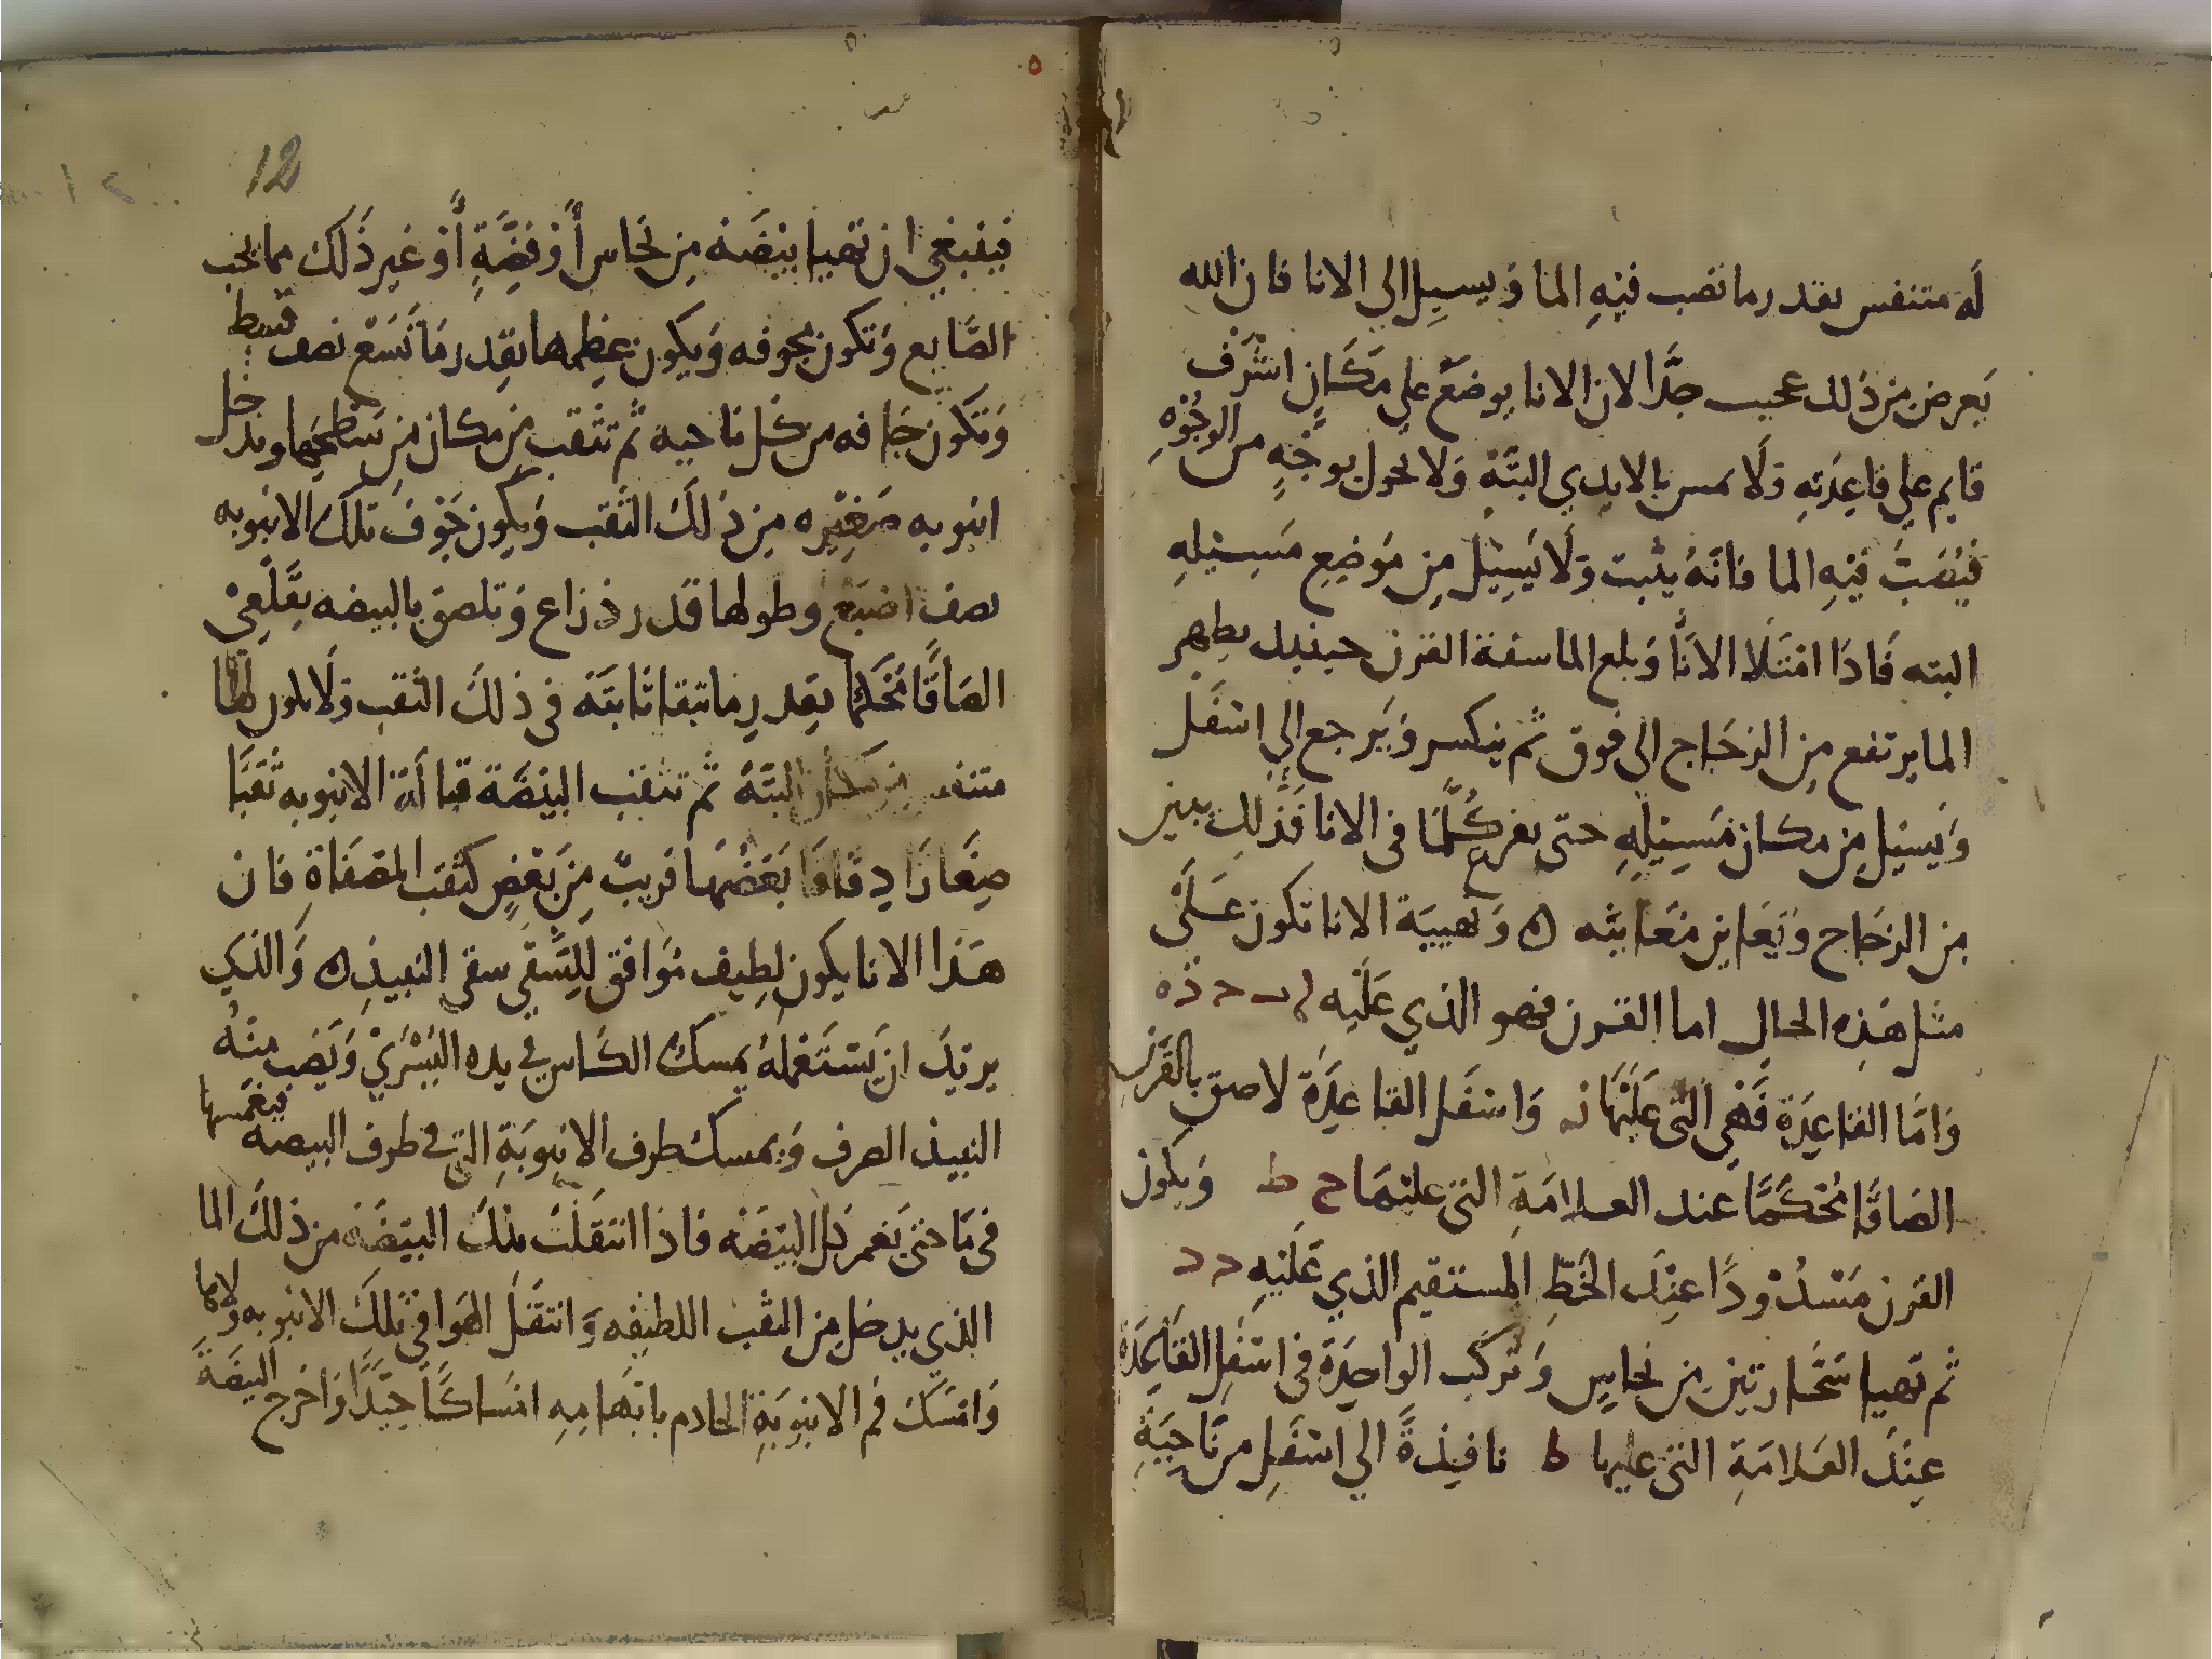 له متنفس بقدر ما تصب فيه الما ويسيل الى الانا فان الله
يعرض من ذلك عجيب جدا لان الانا يوضع علي مكان اشرف
قايم علي قاعدته ولا يمس بالايدي البتة ولا يحول بوجه من الوجوه
فيصب فيه الما فانه يثبت ولا يسيل من موضع مسيله
البته فاذا امتلا الانا وبلغ الما سفة القرن حينيد يظهر
الما يرتفع من الزجاج الى فوق ثم ينكسر ويرجع الي اسفل
ويسيل من مكان مسيله حتى يفرغ كلما في الانا فذلك يبين
من الزجاج ويعاين معاينه ه وهيية الانا تكون علي
مثل هذه الحال اما القرن فهو الذي عليه ا ب ح د ه
واما القاعدة فهي التي عليها واسفل القاعدة لاصق بالقرن
الصاقا محكما عند العلامة التي عليهما ح ط ويكون
القرن مسدودا عند الخط المستقيم الذي عليه
ثم تهيا سحارتين من نحاس وتركب الواحدة في اسفل القاعدة
عند العلامة التي عليها ط نافذة الي اسفل من ناحية
12
فينبغي ان تهيا بيضه من نحاس أو فضة أو غير ذلك مما يحب
الصايع وتكون مجوفه ويكون عظمها بقدر ما تسع نصف قسط
وتكون جافه من كل ناحيه ثم تثقب من مكان من سطحها ويدخل
انبوبه صغيره من ذلك الثقب ويكون جوف تلك الانبوبه
نصف اصبع وطولها قدر ذراع وتلصق بالبيضه بقلعي
الصاقا محكما بقدر ما تبقا ثابته في ذلك الثقب ولا يكون لها
متنفس من مكان البتة ثم تثقب البيضة قبالة الانبوبه ثقبا
صغارا دقاقا بعضها قريب من بعض كثقب المصفاة فان
هذا الانا يكون لطيف موافق لليسقي سقى النبيذ ه والذي
يريد ان يستعمله يمسك الكاس في يده اليسري ويصب منه
النبيذ الصرف ويمسك طرف الانبوبة التي في طرف البيضة فيغمسها
في ما حتى يغمر كل البيضه فاذا انتقلت تلك البيضه من ذلك الما
الذي يدخل من الثقب اللطيفه وانتقل الهوا في تلك الانبوبه ولانما
وامسك فم الانبوبة الخادم بابهامه امساكا جيدا واخرج البيضة